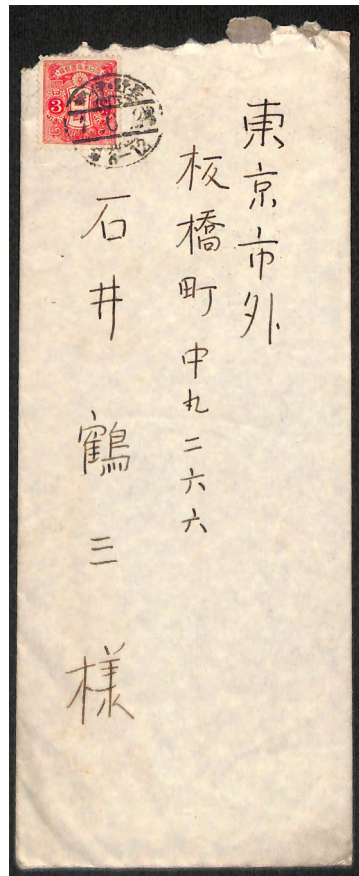 東京市外
板橋町中丸二六六
石井鶴三様
3